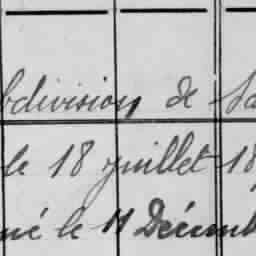 bdivision de
le 18 juillet 18
né le 11 Décemb